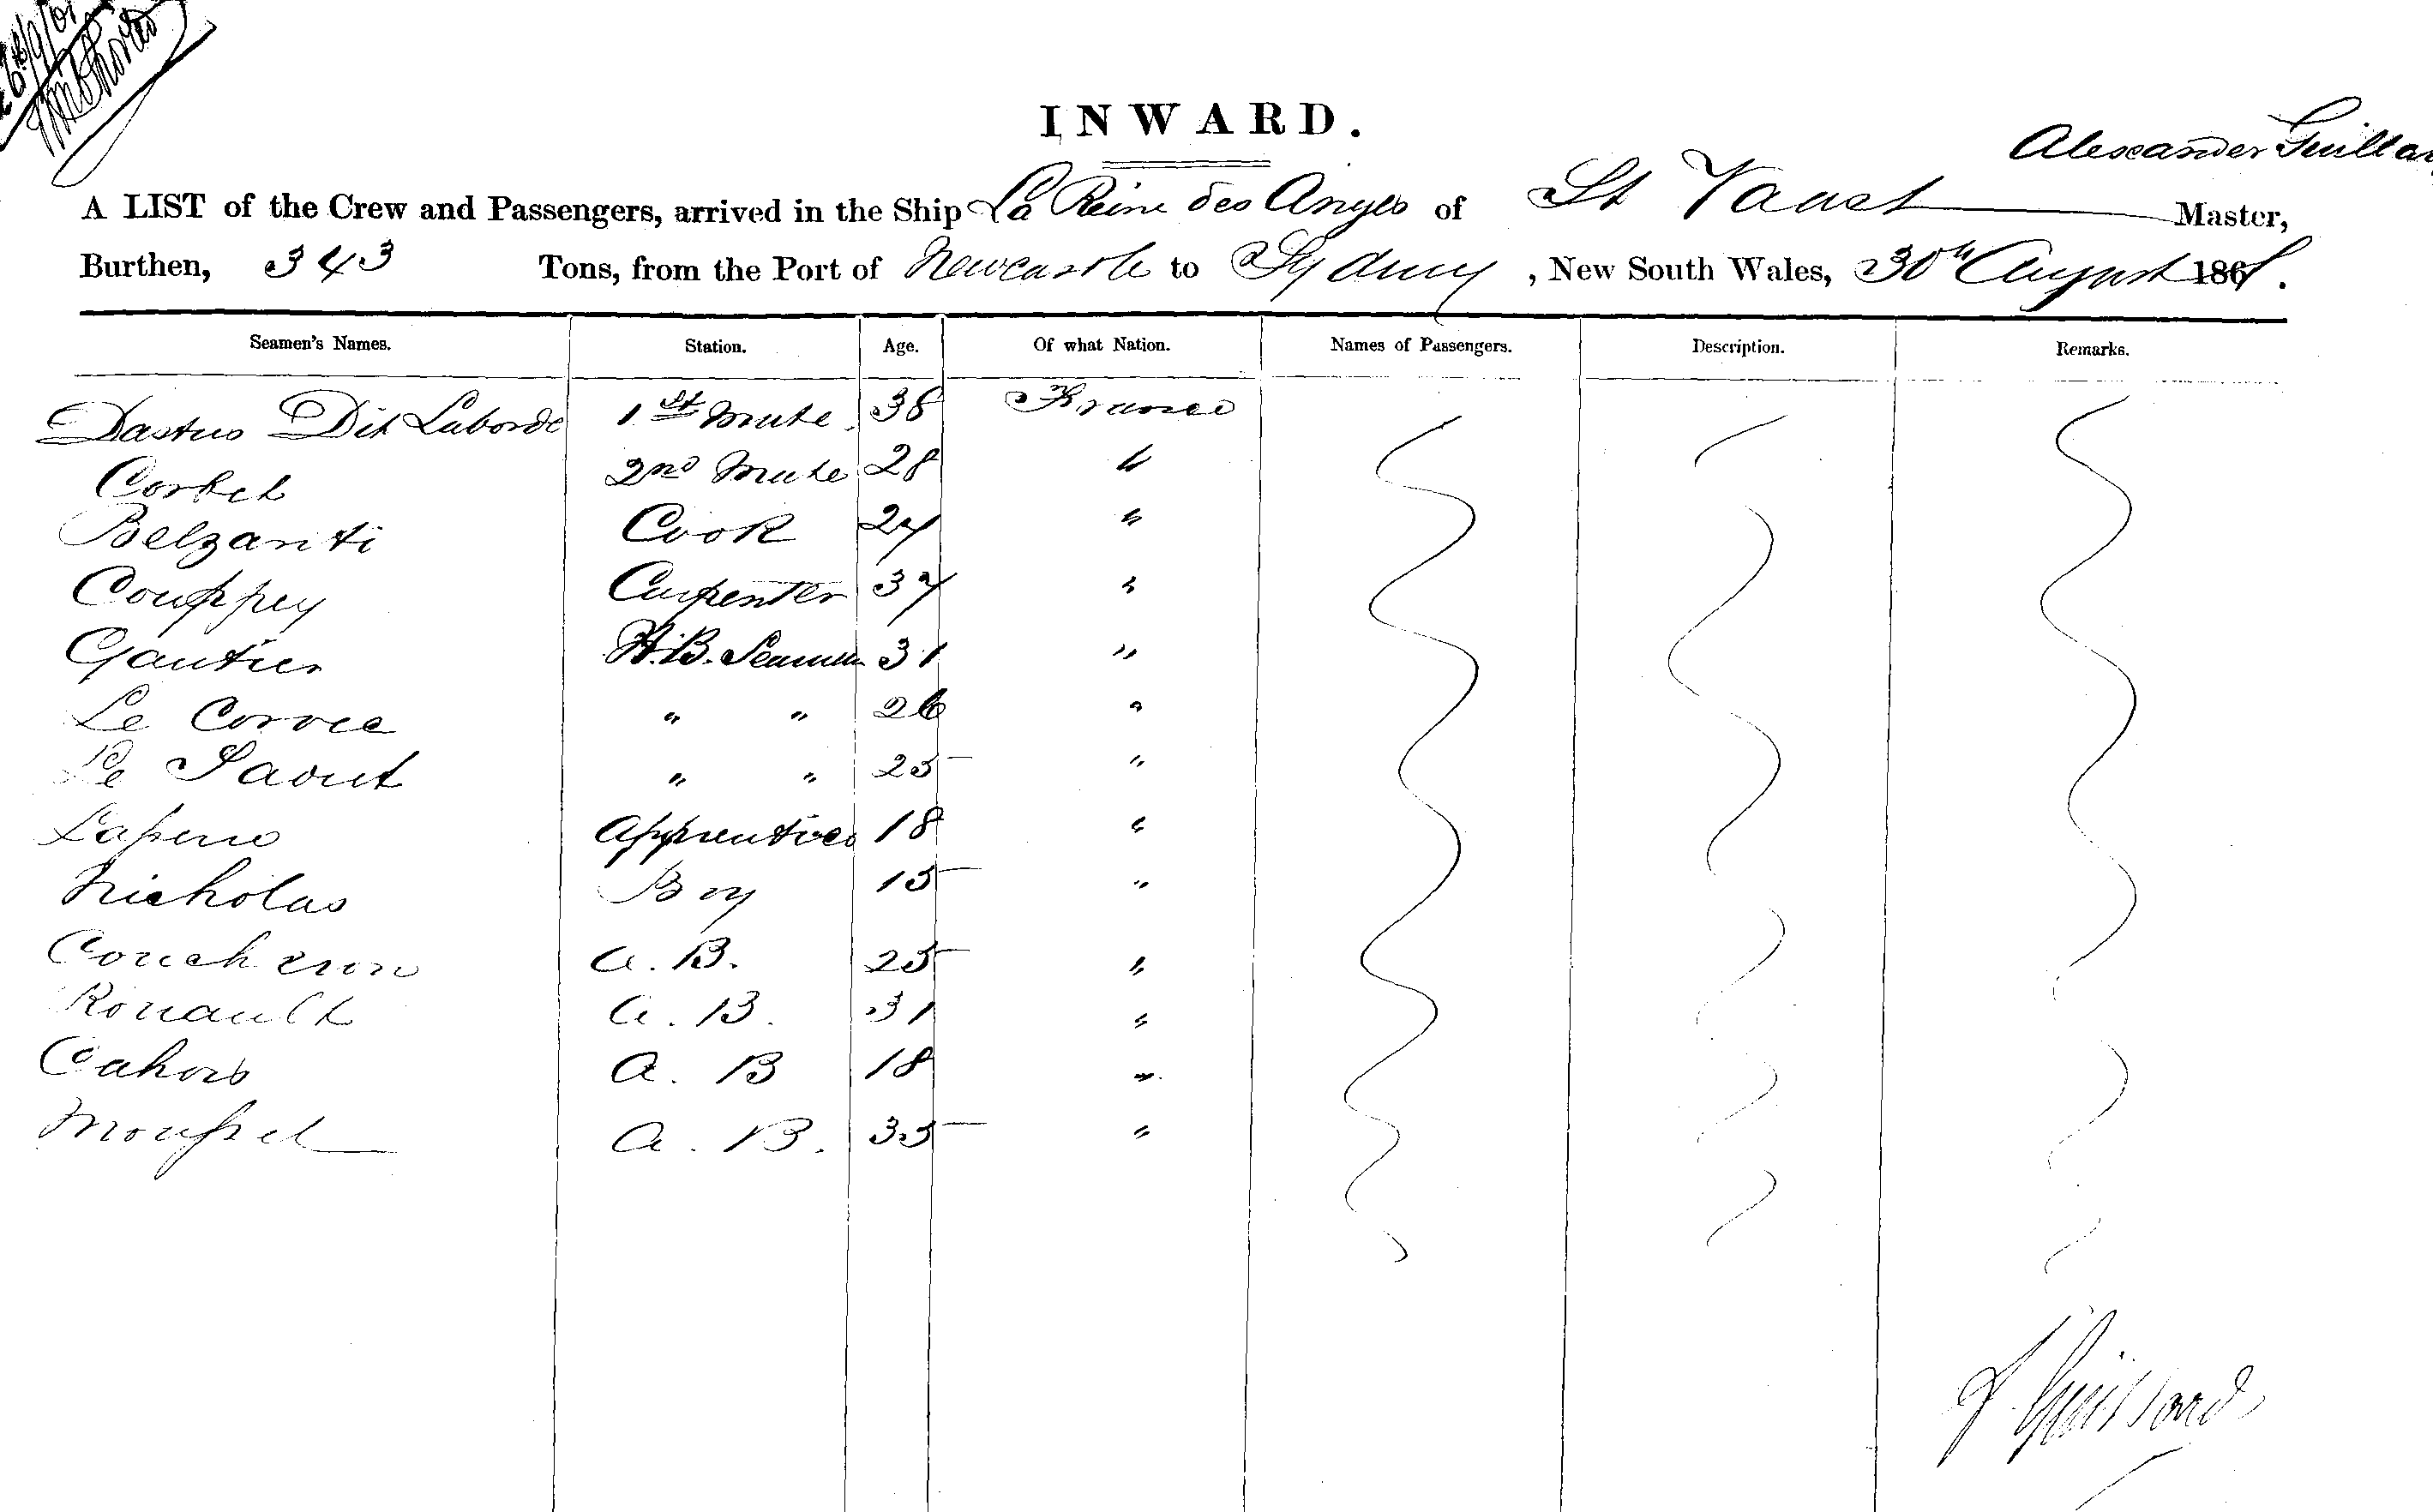 INWARD.
Alexander Guillar
A LIST of the Crew and Passengers, arrived in the Ship La Reine des Anges of St Vaast Master,
Burthen, 343 Tons, from the Port of Newcastle to Sydney, New South Wales, 30th August 1861.
Seamen's Names. Station. Age. Of what Nation. Names of Passengers. Description. Remarks.
Dastus Dit Laborde 1st Mate 38 France
Corbet 2nd Mate 28 "
Belzanti Cook 24 "
Couppey Carpenter 34 "
Gautier A.B. Seamen 31 "
Le Corvec " " 26 "
Le Saout " " 25 "
Apprentices 18 "
Nicholas Boy 15 "
Coucheron A.B. 25 "
Rouault A.B. 31 "
Cahors A.B 18 "
Moussel A.B. 35 "